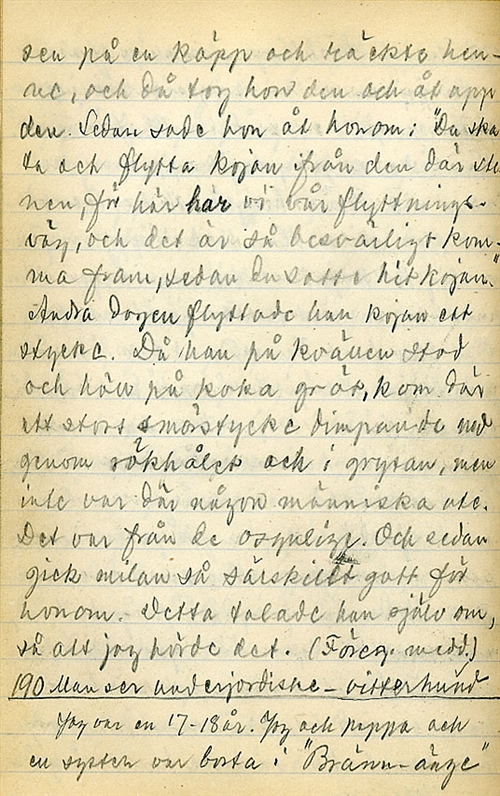 sen på en käpp och räckte hen-
ne, och då tog hon den och åt upp
den. Sedan sade hon åt honom: "Du ska
ta och flytta kojan ifrån den där ste
nen, för här har vi vår flyttnings-
väg, och det är så besvärligt kom-
ma fram, sedan du satte hit kojan."
Andra dagen flyttade han kojan ett
stycke. Då han på kvällen stod
och höll på koka gröt, kom där
ett stort smörstycke dimpande ned
genom rökhålet och i grytan, men
inte var där någon människa ute.
Det var från de osynlige. Och sedan
gick milan så särskilt gott för
honom. Detta talade han själv om,
så att jag hörde det. (Föreg. medd.)
190 Man ser underjordiske - vitterhund
Jag var en 17-18 år. Jag och pappa och
en syster var borta i "Bränn-änge"